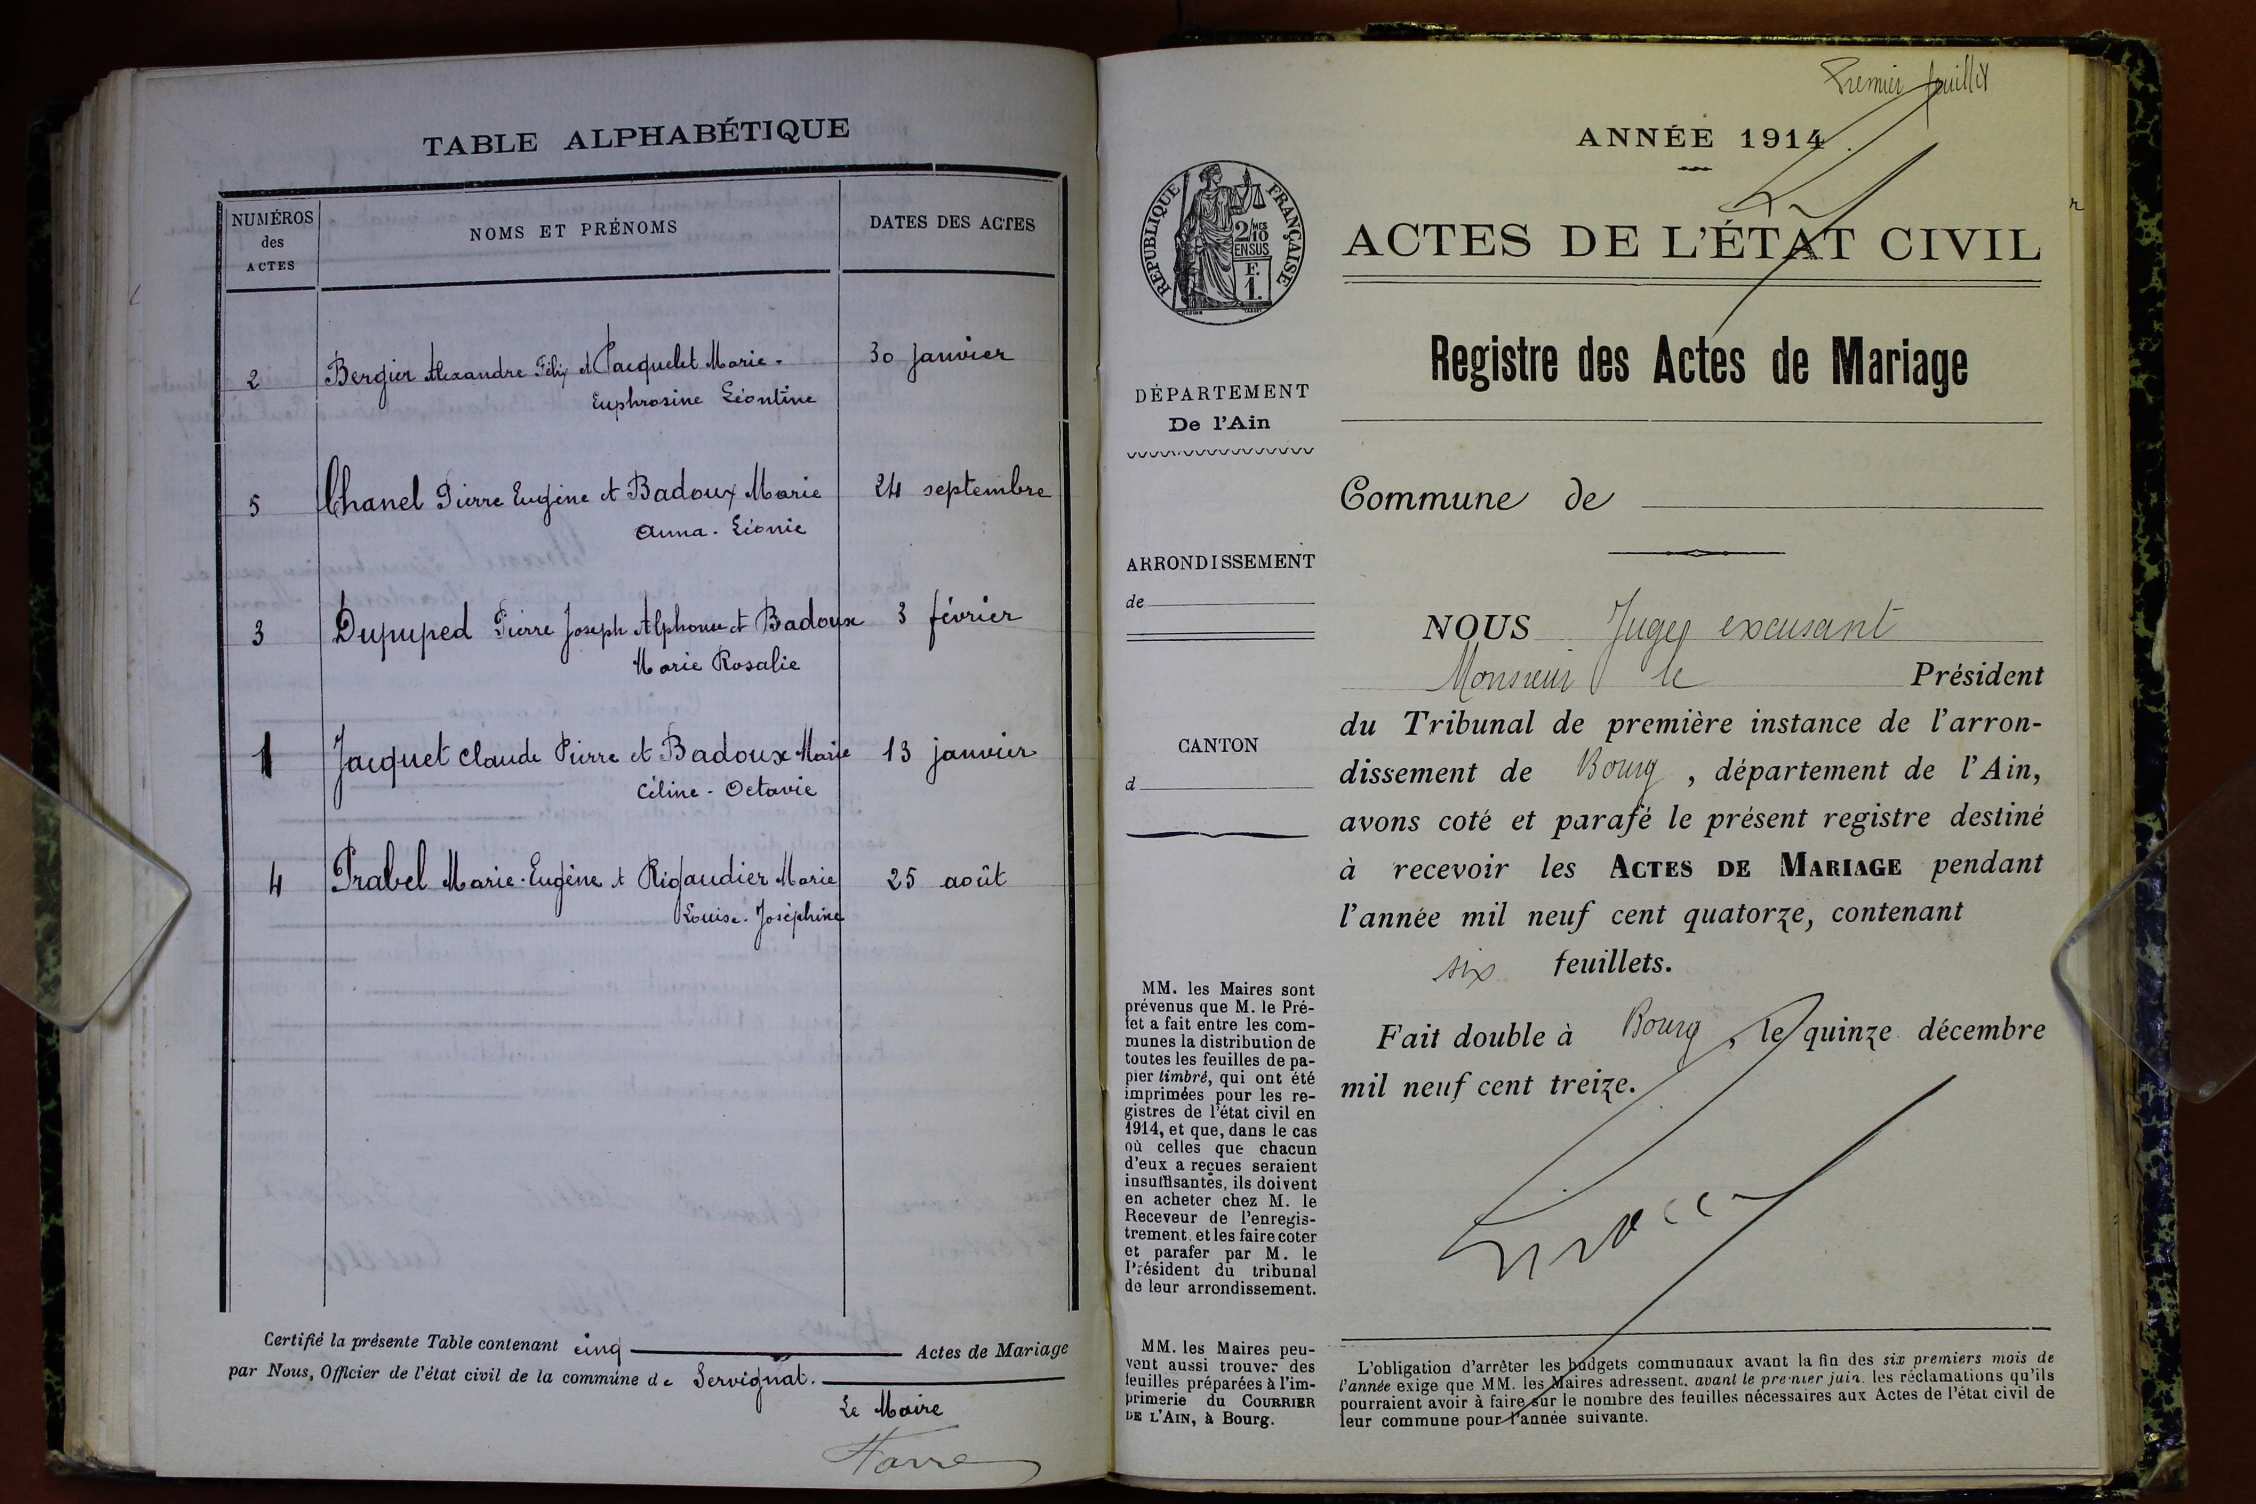 TABLE ALPHABÉTIQUE
NUMÉROS des ACTES
NOMS ET PRÉNOMS
DATES DES ACTES
2 Bergier Alexandre Félix et Pacquelet Marie- 30 janvier
Euphrosine Léontine
5 Chanel Pierre Eugène et Badoux Marie 24 septembre
Anna-Léonie
3 Dupuped Pierre Joseph Alphonse et Badoux 3 février
Marie Rosalie
1 Jacquet Claude Pierre et Badoux Marie 13 janvier
Céline-Octavie
4 Prabel Marie-Eugène et Rigaudier Marie 25 août
Louise-Joséphine
Certifié la présente Table contenant cinq Actes de Mariage
par Nous, Officier de l'état civil de la commune de Servignat.
Le Maire
Premier feuillet
ANNÉE 1914
RÉPUBLIQUE FRANÇAISE
2/10 MES
EN SUS
F.
1.
ACTES DE L'ÉTAT CIVIL
Registre des Actes de Mariage
DÉPARTEMENT
De l'Ain
Commune de
ARRONDISSEMENT
de
CANTON
d
NOUS Juge excusant
Monsieur le Président
du Tribunal de première instance de l'arron-
dissement de Bourg, département de l'Ain,
avons coté et parafé le présent registre destiné
à recevoir les ACTES DE MARIAGE pendant
l'année mil neuf cent quatorze, contenant
six feuillets.
Fait double à Bourg, le quinze décembre
mil neuf cent treize.
MM. les Maires sont
prévenus que M. le Pré-
fet a fait entre les com-
munes la distribution de
toutes les feuilles de pa-
pier timbré, qui ont été
imprimées pour les re-
gistres de l'état civil en
1914, et que, dans le cas
où celles que chacun
d'eux a reçues seraient
insuffisantes, ils doivent
en acheter chez M. le
Receveur de l'enregis-
trement, et les faire coter
et parafer par M. le
Président du tribunal
de leur arrondissement.
MM. les Maires peu-
vent aussi trouver des
feuilles préparées à l'im-
primerie du COURRIER
DE L'AIN, à Bourg.
L'obligation d'arrêter les budgets communaux avant la fin des six premiers mois de
l'année exige que MM. les Maires adressent, avant le premier juin, les réclamations qu'ils
pourraient avoir à faire sur le nombre des feuilles nécessaires aux Actes de l'état civil de
leur commune pour l'année suivante.